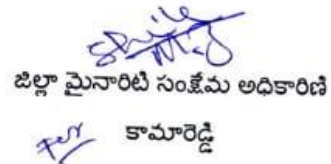 జిల్లా మైనారిటి సంక్షేమ అధికారిణి
for కామారెడ్డి